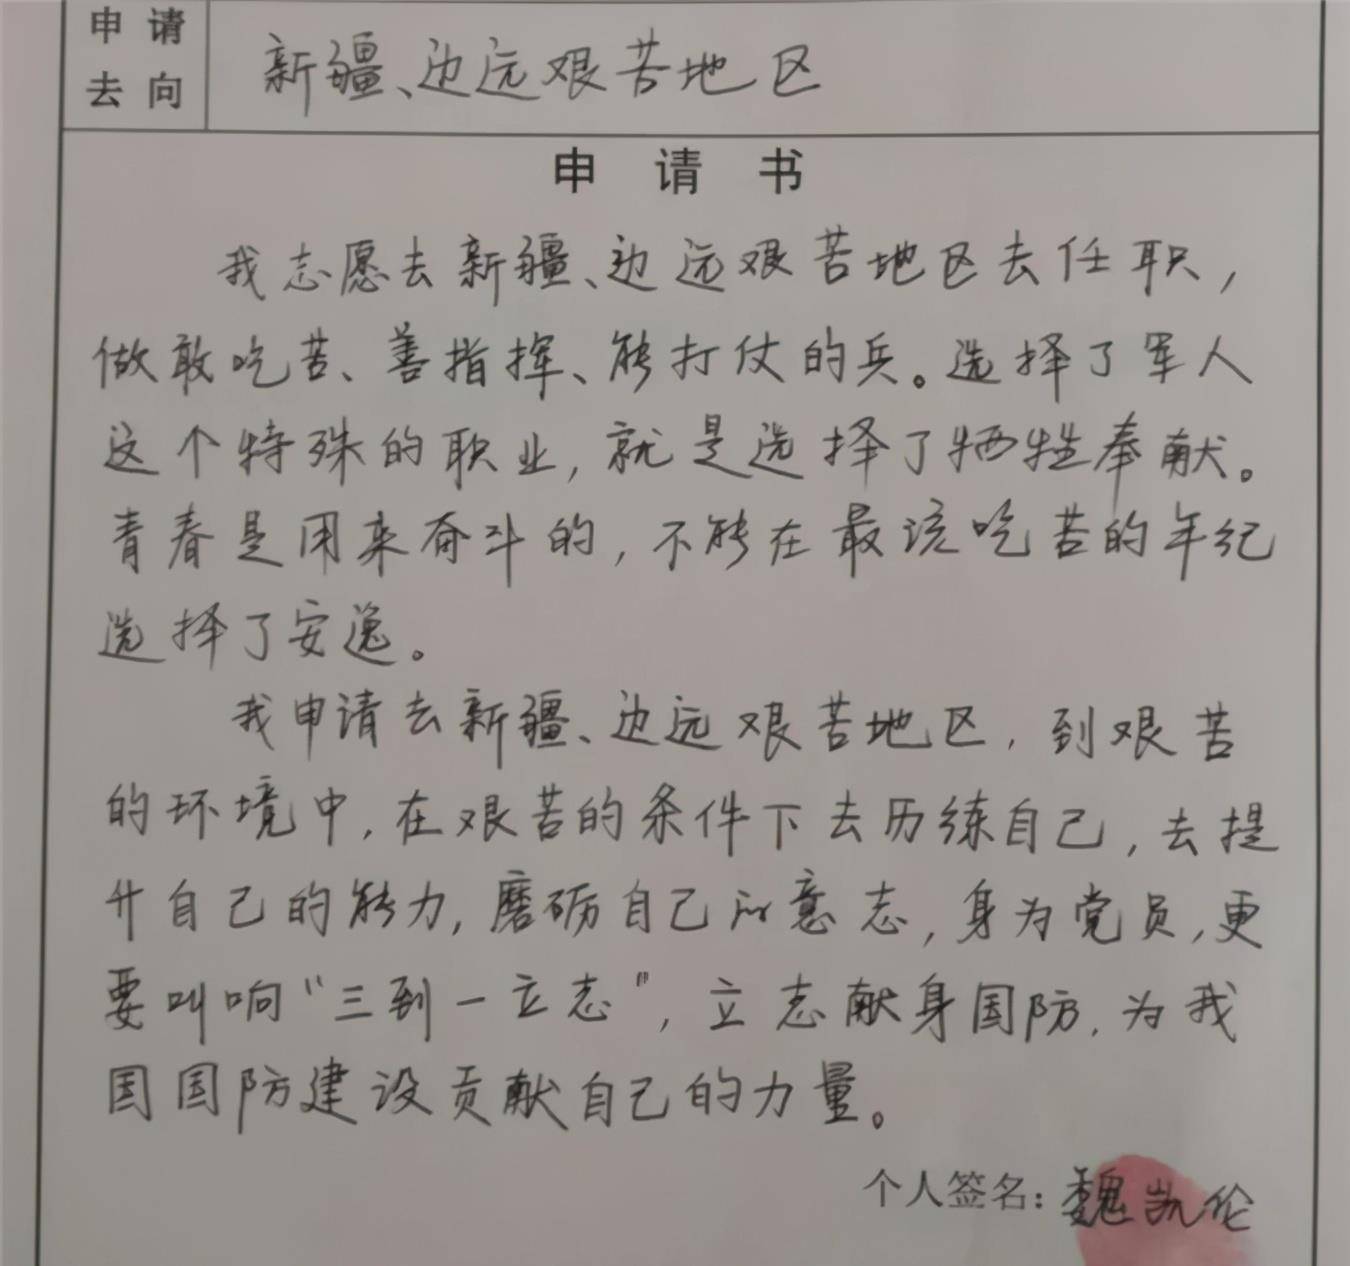 申请
去向
新疆、边远艰苦地区
申请书
我志愿去新疆、边远艰苦地区去任职，
做敢吃苦、善指挥、能打仗的兵。选择了军人
这个特殊的职业，就是选择了牺牲奉献。
青春是用来奋斗的，不能在最该吃苦的年纪
选择了安逸。
我申请去新疆、边远艰苦地区，到艰苦
的环境中，在艰苦的条件下去历练自己，去提
升自己的能力，磨砺自己的意志，身为党员，更
要叫响“三到一立志”，立志献身国防，为我
国国防建设贡献自己的力量。
个人签名：魏凯伦